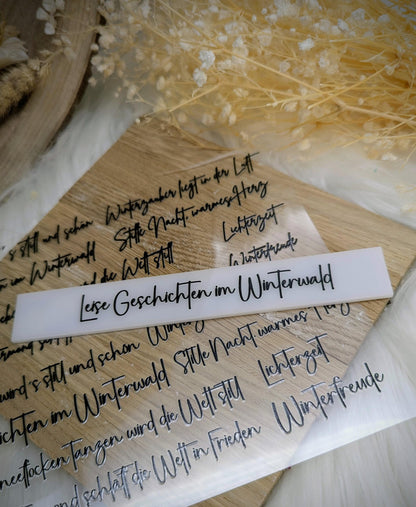 s still und schön Winterzauber liegt in der Luft
en im Winterwald Stille Nacht, warmes Herz
und die Welt still Lichterzeit
Winterfreude
Leise Geschichten im Winterwald
wird's still und schön
Stille Nacht, warmes
ichten im Winterwald Lichterzeit
neeflocken tanzen wird die Welt still
und schläft die Welt in Frieden Winterfreude